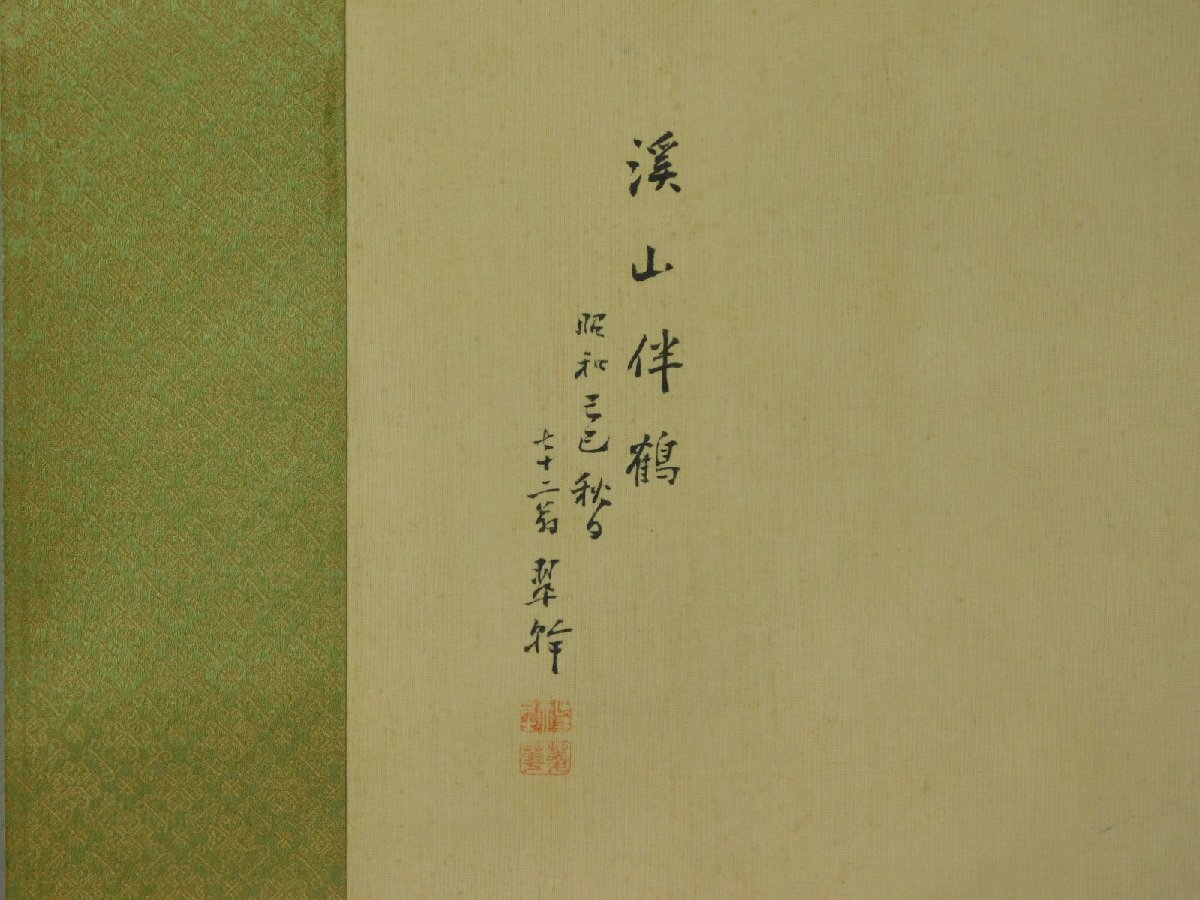 溪山伴鶴
昭和己巳秋日
七十二翁 翠幹